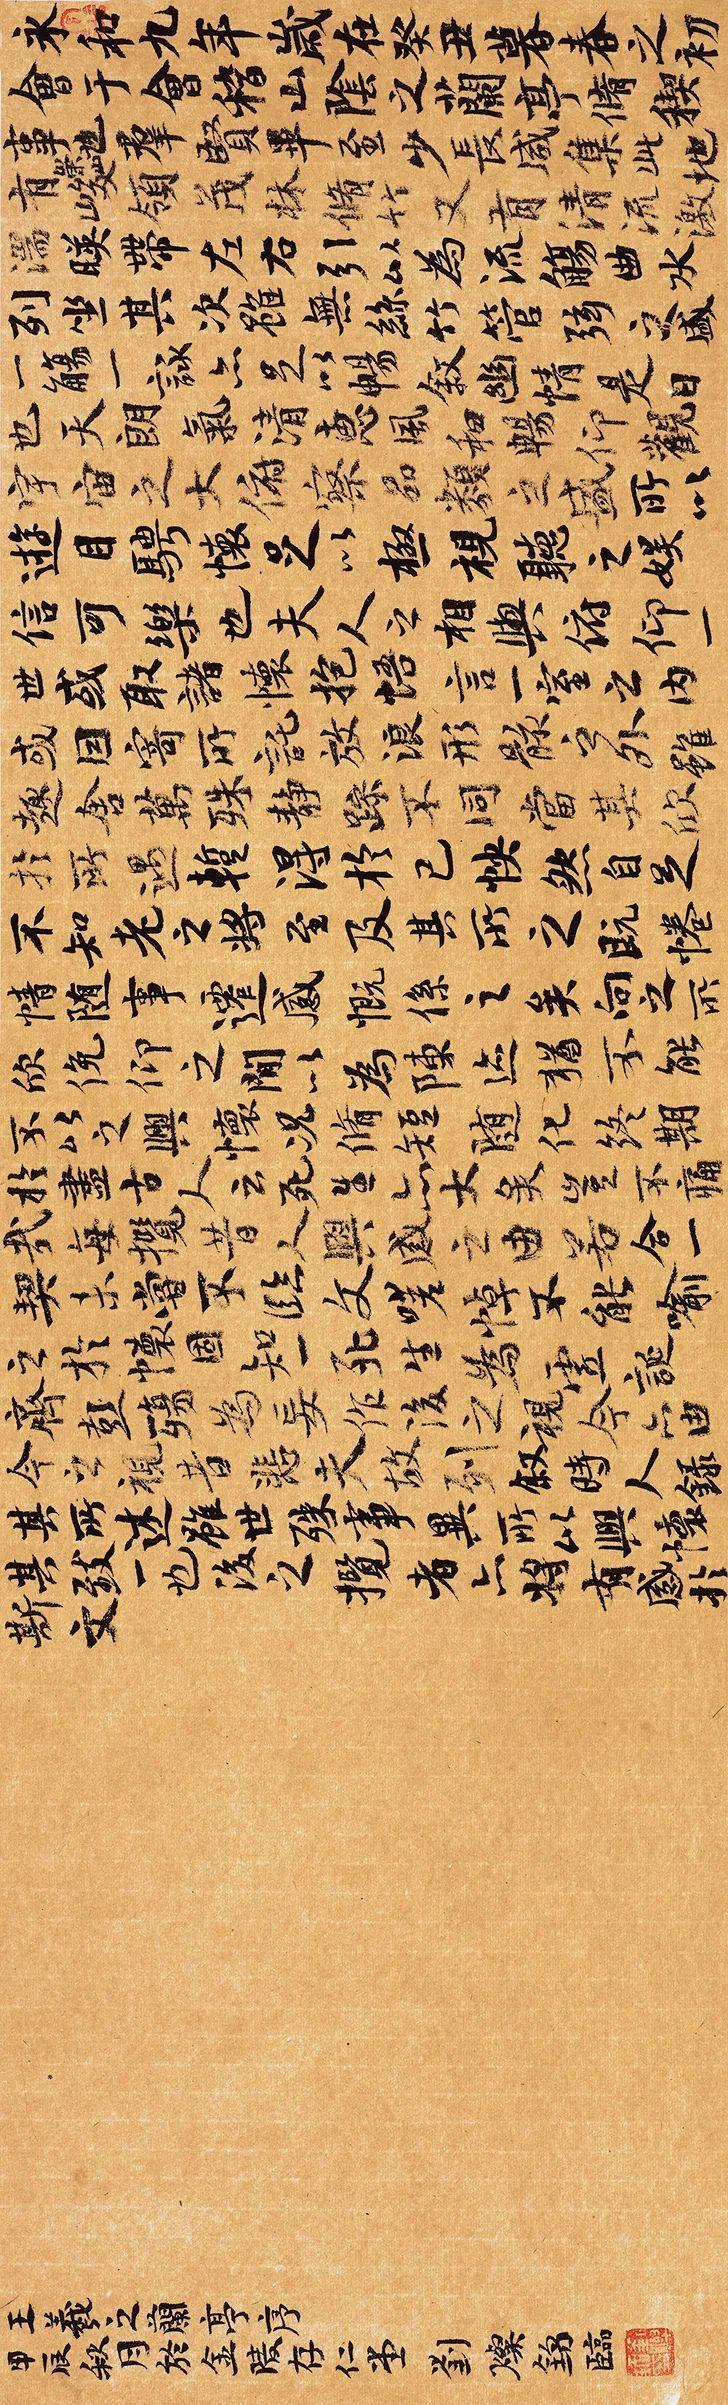 永和九年歲在癸丑暮春之初
會于會稽山陰之蘭亭脩稧
事也羣賢畢至少長咸集此地
有崇山峻領茂林脩竹又有清流激
湍暎帶左右引以為流觴曲水
列坐其次雖無絲竹管弦之盛
一觴一詠亦足以暢敘幽情是日
也天朗氣清惠風和暢仰觀
宇宙之大俯察品類之盛所以
遊目騁懷足以極視聽之娛
信可樂也夫人之相與俯仰一
世或取諸懷抱悟言一室之內
或因寄所託放浪形骸之外雖
趣舍萬殊靜躁不同當其欣
於所遇暫得於己怏然自足
不知老之將至及其所之既惓
情随事遷感慨係之矣向之所
欣俛仰之閒以為陳迹猶不能
不以之興懷況脩短随化終期
於盡古人云死生亦大矣豈不痛
哉每攬昔人興感之由若合一
契未嘗不臨文嗟悼不能喻
之於懷固知一死生為虛誕
齊彭殤為妄作後之視今亦由
今之視昔悲夫故列敘時人錄
其所述雖世殊事異所以興懷
其致一也後之攬者亦將有感於
斯文
王羲之蘭亭序
甲辰秋月於金陵存仁堂劉燦銘臨